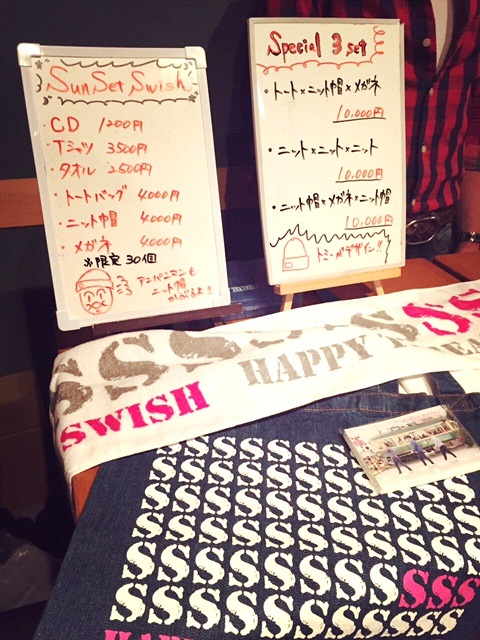 Sun Set Swish
・CD 1200円
・Tシャツ 3500円
・タオル 2500円
・トートバッグ 4000円
・ニット帽 4000円
・メガネ 4000円
※限定30個
アンパンマンも
ニット帽
かぶるよ!!
Special 3 set
・トート×ニット帽×メガネ
10,000円
・ニット×ニット×ニット
10,000円
・ニット帽×メガネ×ニット帽
10,000円
トミーがデザイン!!
SSSSS SS
SWISH HAPPY
SSSSSSSSSSS
SSSSSSSSSSS
SSSSSSSSSSS